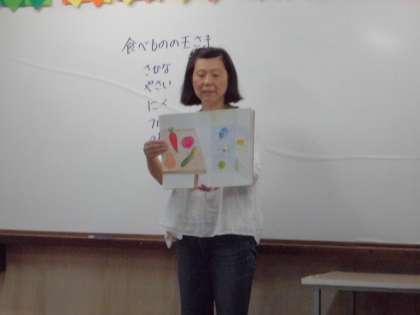 食べものの王さま
さかな
やさい
にく